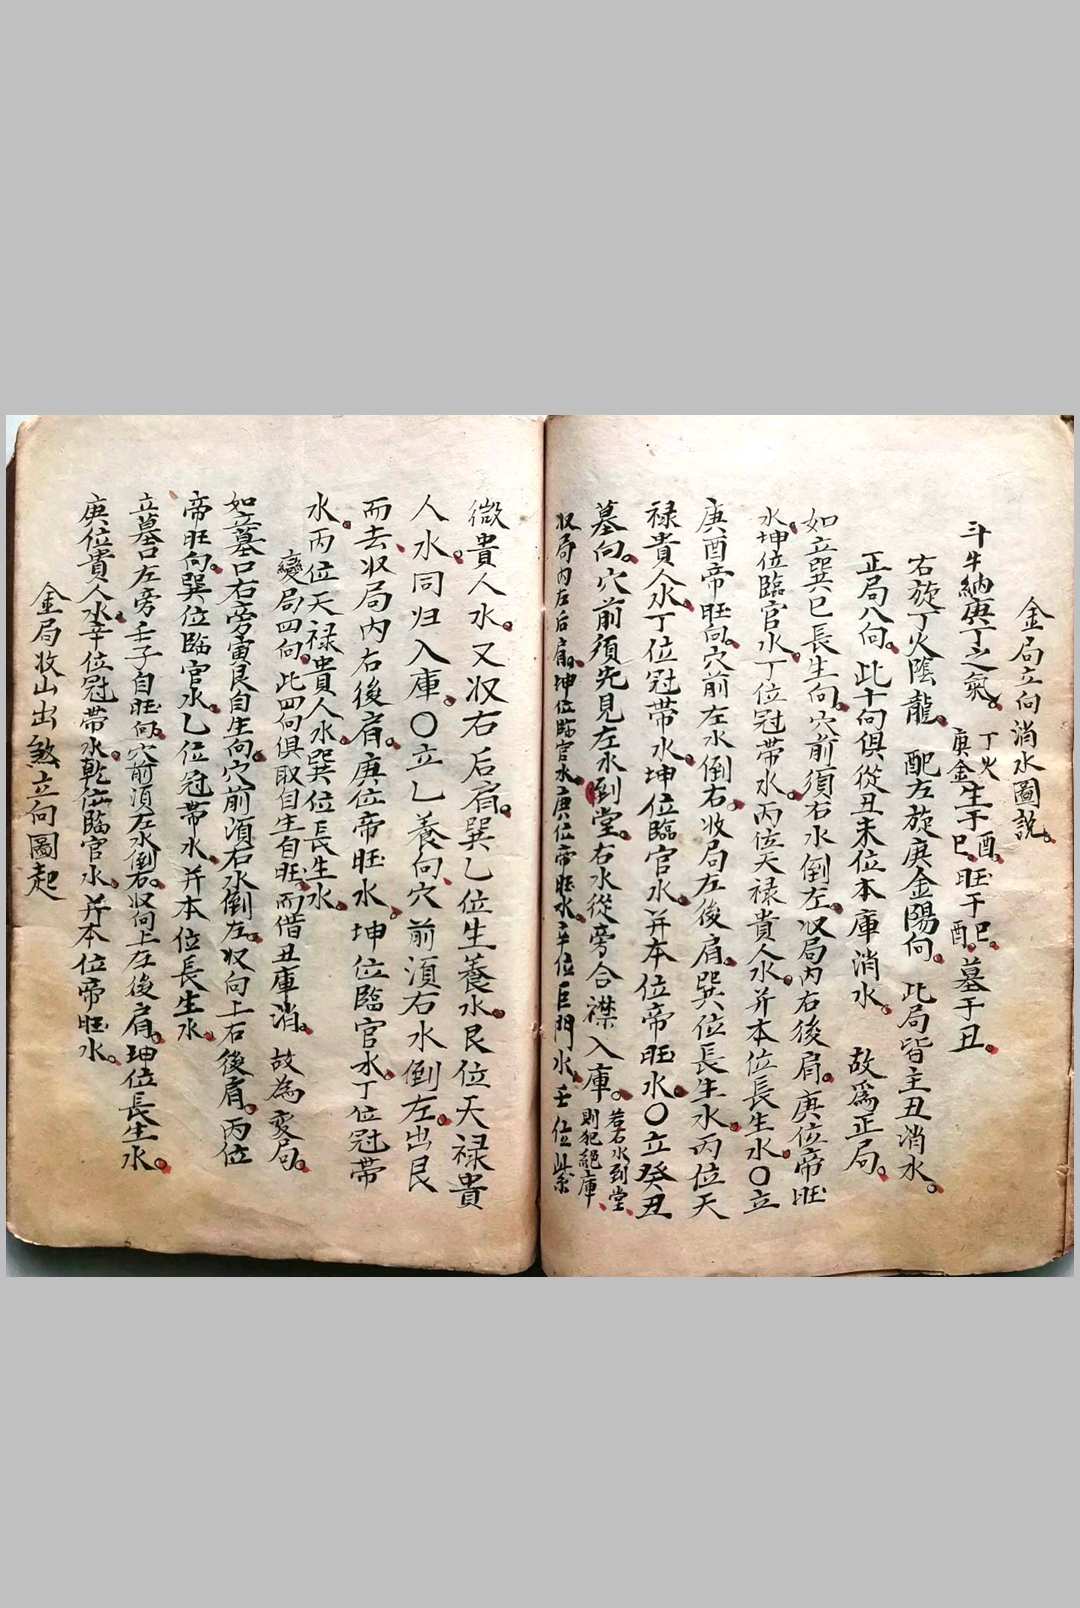 金局立向消水圖說。
斗牛納庚丁之氣。丁火庚金生于酉巳。旺于巳酉。墓于丑。
右旋丁火陰龍。配左旋庚金陽向。此局皆主丑消水。
正局八向。此十向俱從丑未位本庫消水。故爲正局。
如立巽巳長生向。穴前須右水倒左。収局內右後肩。庚位帝旺
水。坤位臨官水。丁位冠帶水。丙位天禄貴人水。并本位長生水。○立
庚酉帝旺向。穴前左水倒右。收局左後肩。巽位長生水。丙位天
禄貴人水。丁位冠帶水。坤位臨官水。并本位帝旺水。○立癸丑
墓向。穴前須先見左水到堂。右水從旁合襟入庫。若右水到堂。則犯絕庫。
収局內左后肩。坤位臨官水。庚位帝旺水。辛位巨門水。壬位紫
微貴人水。又収右后肩。巽乙位生養水。艮位天禄貴
人水。同归入庫。○立乙養向。穴前須右水倒左。出艮
而去。收局內右後肩。庚位帝旺水。坤位臨官水。丁位冠帶
水。丙位天禄貴人水。巽位長生水。
變局四向。此四向俱取自生自旺。而借丑庫消。故為变局。
如立墓口右旁寅艮自生向。穴前須右水倒左。収向上右後肩。丙位
帝旺向。巽位臨官水。乙位冠帶水。并本位長生水。
立墓口左旁壬子自旺向。穴前須左水倒右。収向上左後肩。坤位長生水。
庚位貴人水。辛位冠帶水。乾位臨官水。并本位帝旺水。
金局收山出煞立向圖起